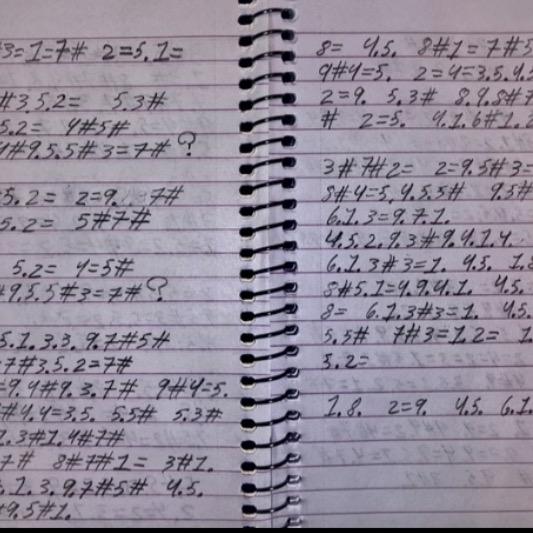 #3=1=7# 2=5.1=
#3.5.2= 5.3#
5.2= 4#5#
4#9.5.5#3=7#?
#5.2= 2=9. 7#
5.2= 5#7#
5.2= 4=5#
#9.5.5#3=7#?
5.1.3.3.9.7#5#
=7#3.5.2=7#
=9.4#9.3.7# 9#4=5.
##4.4=3.5. 5.5# 5.3#
1.3#1.4#7#
7# 8#7#1= 3#1.
3.1.3.9.7#5# 4.5.
#9.5#1.
8= 4.5. 8#1=7#5
9#4=5. 2=4=3.5.4.5
2=9. 5.3# 8.9.8#7
# 2=5. 4.1.6#1.2
3#7#2= 2=9.5#3=
8#4=5.4.5.5# 9.5#
6.1.3=9.7.1.
4.5.2.9.3#9.4.1.4.
6.1.3#3=1. 4.5. 1.8
8#5.1=4.9.4.1. 4.5.
8= 6.1.3#3=1. 4.5.
5.5# 7#3=1.2= 1.
5.2=
1.8. 2=9. 4.5. 6.1.